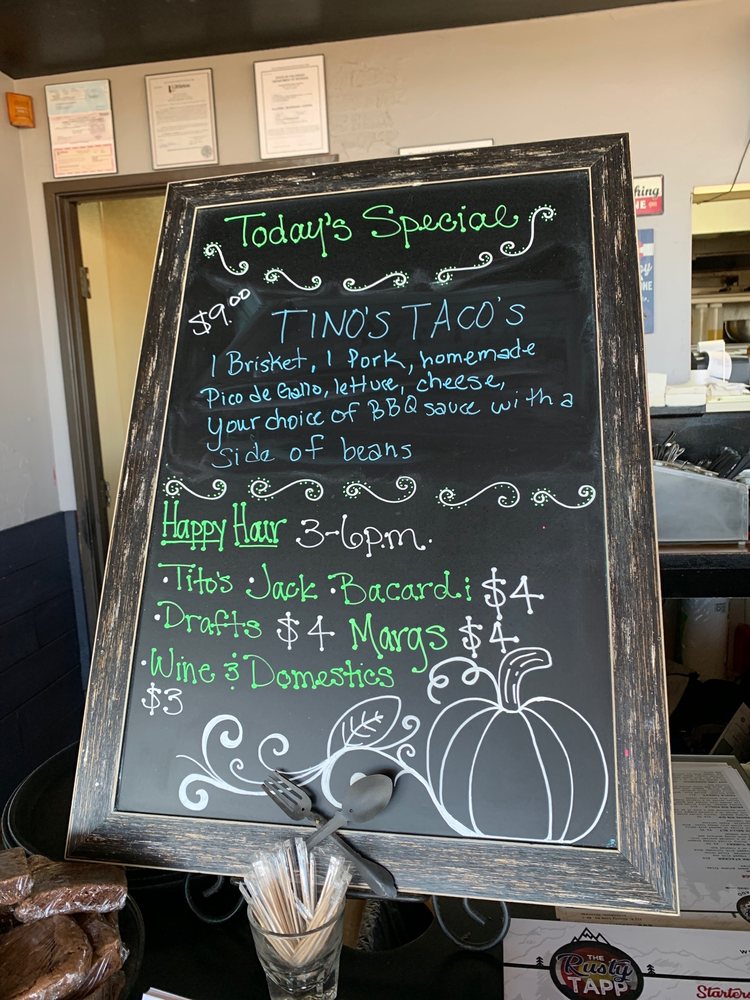 Today's Special
$9.00
TINO'S TACO'S
1 Brisket, 1 Pork, homemade
Pico de Gallo, lettuce, cheese,
your choice of BBQ sauce with a
side of beans
Happy Hair 3-6p.m.
·Tito's ·Jack ·Bacardi $4
·Drafts $4 Margs $4
·Wine & Domestics
$3
THE
Rusty
TAPP
Starters